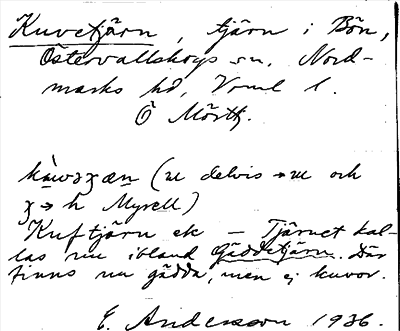 Kuvetjärn, tjärn i Bön,
Östervallskogs sn, Nord-
marks hd, Vrml l.
Ö Mörtt.
(ɯ delvis → ɯ och
ʒ → h Myrell)
Kuftjärn ek – Tjärnet kal-
las nu ibland Gäddetjärn. Där
finns nu gädda, men ej kuvor.
E. Andersson 1936.